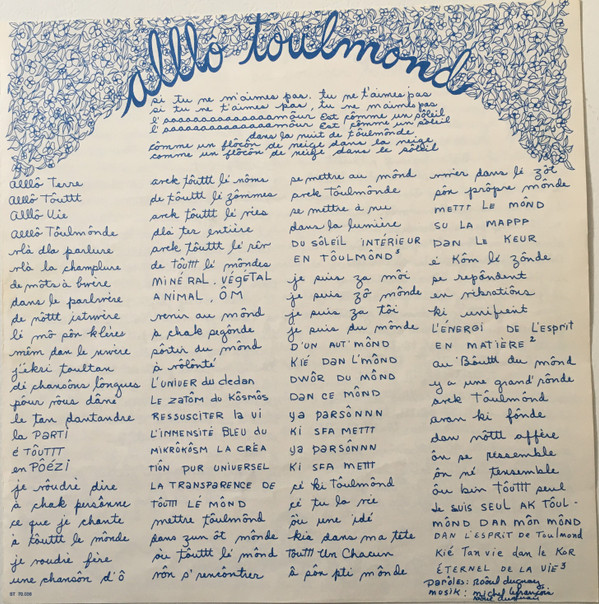 alllô toulmônd
si tu ne m'aimes pas, tu ne t'aimes pas
si tu ne t'aimes pas, tu ne m'aimes pas
l'aaaaaaaaaaaaaamôur Est cômme un sôleil
l'aaaaaaaaaaaaaamôur Est cômme un sôleil
dans la nuit de tôulmônde
cômme un flôcôn de neige dans la neige
cômme un flôcôn de neige dans le sôleil
Alllô Terre
Alllô Tôuttt
Alllô Vie
Alllô Tôulmônde
vlà dla parlure
vlà la champlure
de môts à bwère
dans le parlwère
de nôttt istwère
lé mô sôn klères
mêm dan le nwère
j'ékri toultan
di chansôns lôngues
pôur vôus dâne
le tan dantandre
la PARTI
É TÔUTTT
en PÔÉZI
je vôudré dire
à chak persônne
ce que je chante
à tôuttt le mônde
je voudré fère
une chansôn d'ô
avek tôuttt lé nôms
de tôuttt lé zômmes
avek tôuttt lé vies
dla ter entière
avek tôuttt lé rêv
de tôuttt lé môndes
MINÉRAL, VÉGÉTAL
ANIMAL, ÔM
venir au mônd
à chak segônde
sôrtir du mônd
à vôlônté
L'UNIVER du dedan
LE ZATÔM du KÔSMÔS
RESSUSCITER la VI
L'IMMENSITÉ BLEU du
MIKRÔKÔSM LA CRÉA
TIÔN PUR UNIVERSEL
LA TRANSPARENCE DE
TÔUTTT LÉ MÔND
mettre tôulmônd
dans zun ôt mônde
ôu tôuttt lé mônd
vôn s'rencôntrer
se mettre au mônd
avek Tôulmônde
se mettre à nu
dans la lumière
DU SÔLEIL INTÉRIEUR
EN TÔULMÔND⁵
je suis za môi
je suis zô mônde
je suis za tôi
je suis du mônde
D'UN AUT' MÔND
KIÉ DAN L'MÔND
DWÔR DU MÔND
DAN CE MÔND
YA PARSÔNNN
KI SFA METTT
YA PARSÔNNN
KI SFA METTT
cé ki Tôulmônd
cé tu la vie
ôu une idé
kia dans ma tête
tôuttt Un Chacun
à sôn pti mônde
viv'er dans lé zôt
sôn prôpre mônde
METTT LE MÔND
SU LA MAPPP
DAN LE KEUR
é Kôm lé zônde
se répandent
en vibrations
ki unifient
L'ÉNERGI DE L'ESPRIT
EN MATIÈRE²
au Bôuttt du mônd
y a une grand' rônde
avek Tôulmônd
avan ki fônde
dan nôttt affère
ôn se ressemble
ôn né t'ensemble
ôu bin tôuttt seul
Je SUIS SEUL AK TOUL-
MÔND DAN MÔN MÔND
DAN L'ESPRIT DE TOULMÔND
Kié tan vie dan le KOR
ÉTERNEL DE LA VIE³
PARÔLES: RAÔUL DUGUAY
MUSIK: Michel Lefrançois
Raôul Duguay
ST 70.036